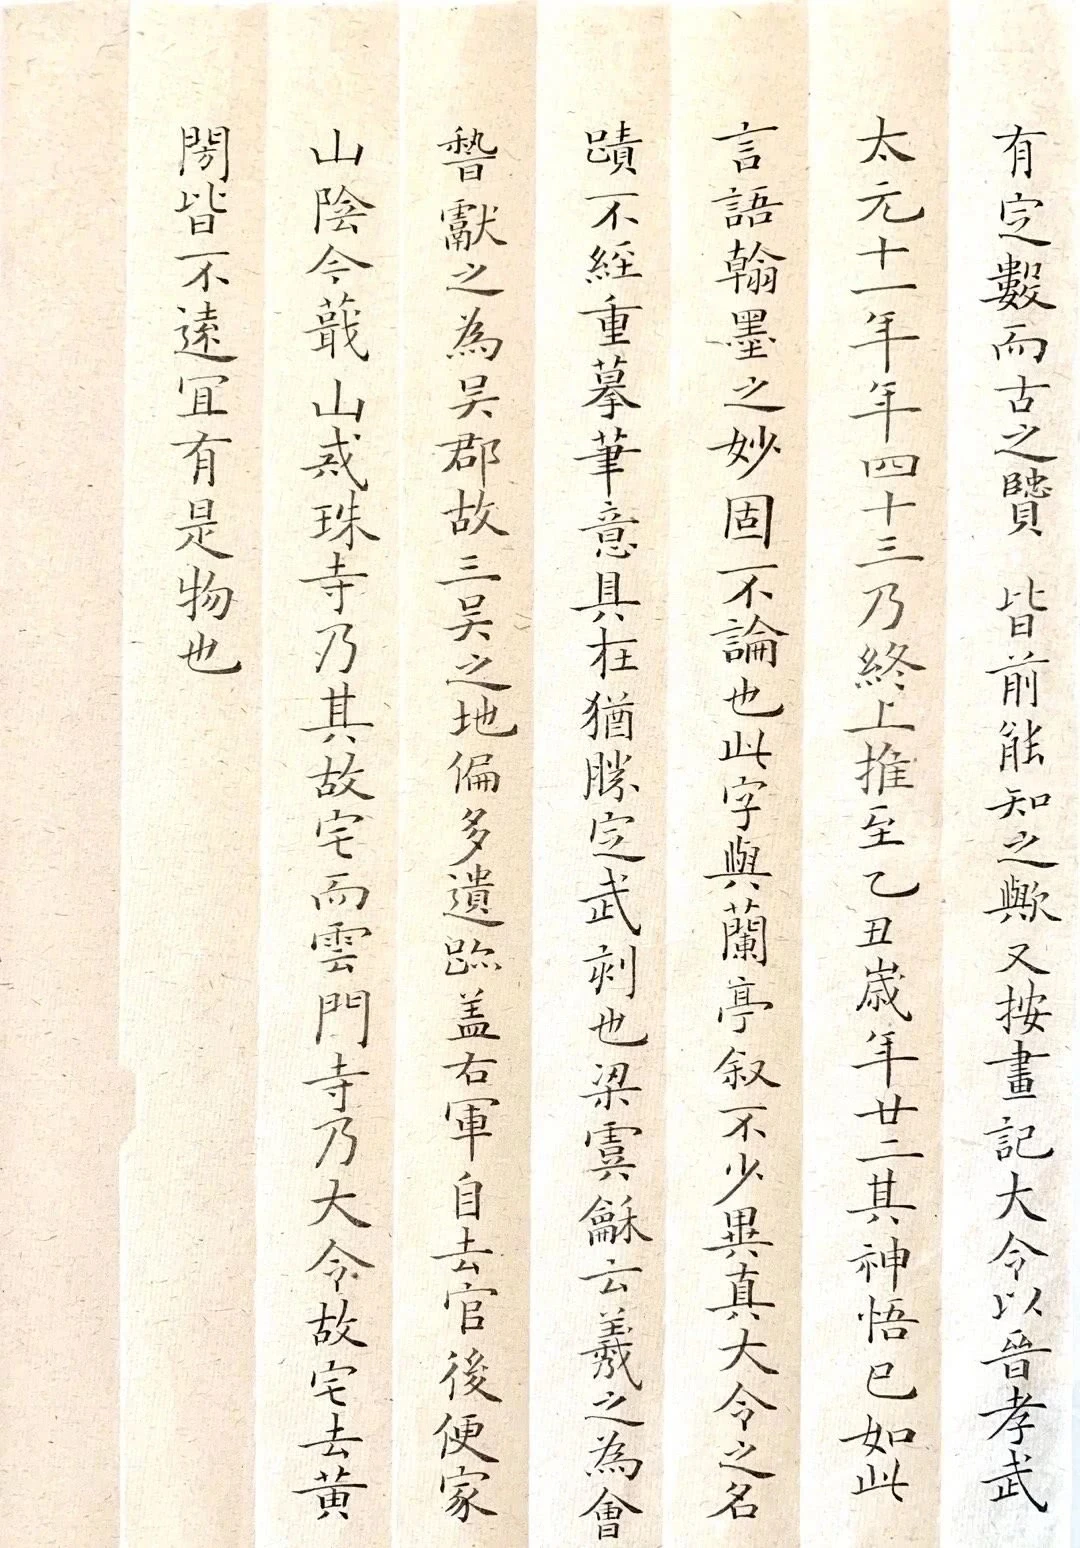 有定數而古之賢皆前能知之歟又按畫記大令以晉孝武
太元十一年年四十三乃終上推至乙丑歲年廿二其神悟已如此
言語翰墨之妙固不論也此字與蘭亭叙不少異真大令之名
蹟不經重摹筆意具在猶勝定武刻也梁虞龢云羲之為會
稽獻之為吴郡故三吴之地偏多遺跡盖右軍自去官後便家
山陰今蕺山戒珠寺乃其故宅而雲門寺乃大令故宅去黄
閍皆不遠宜有是物也